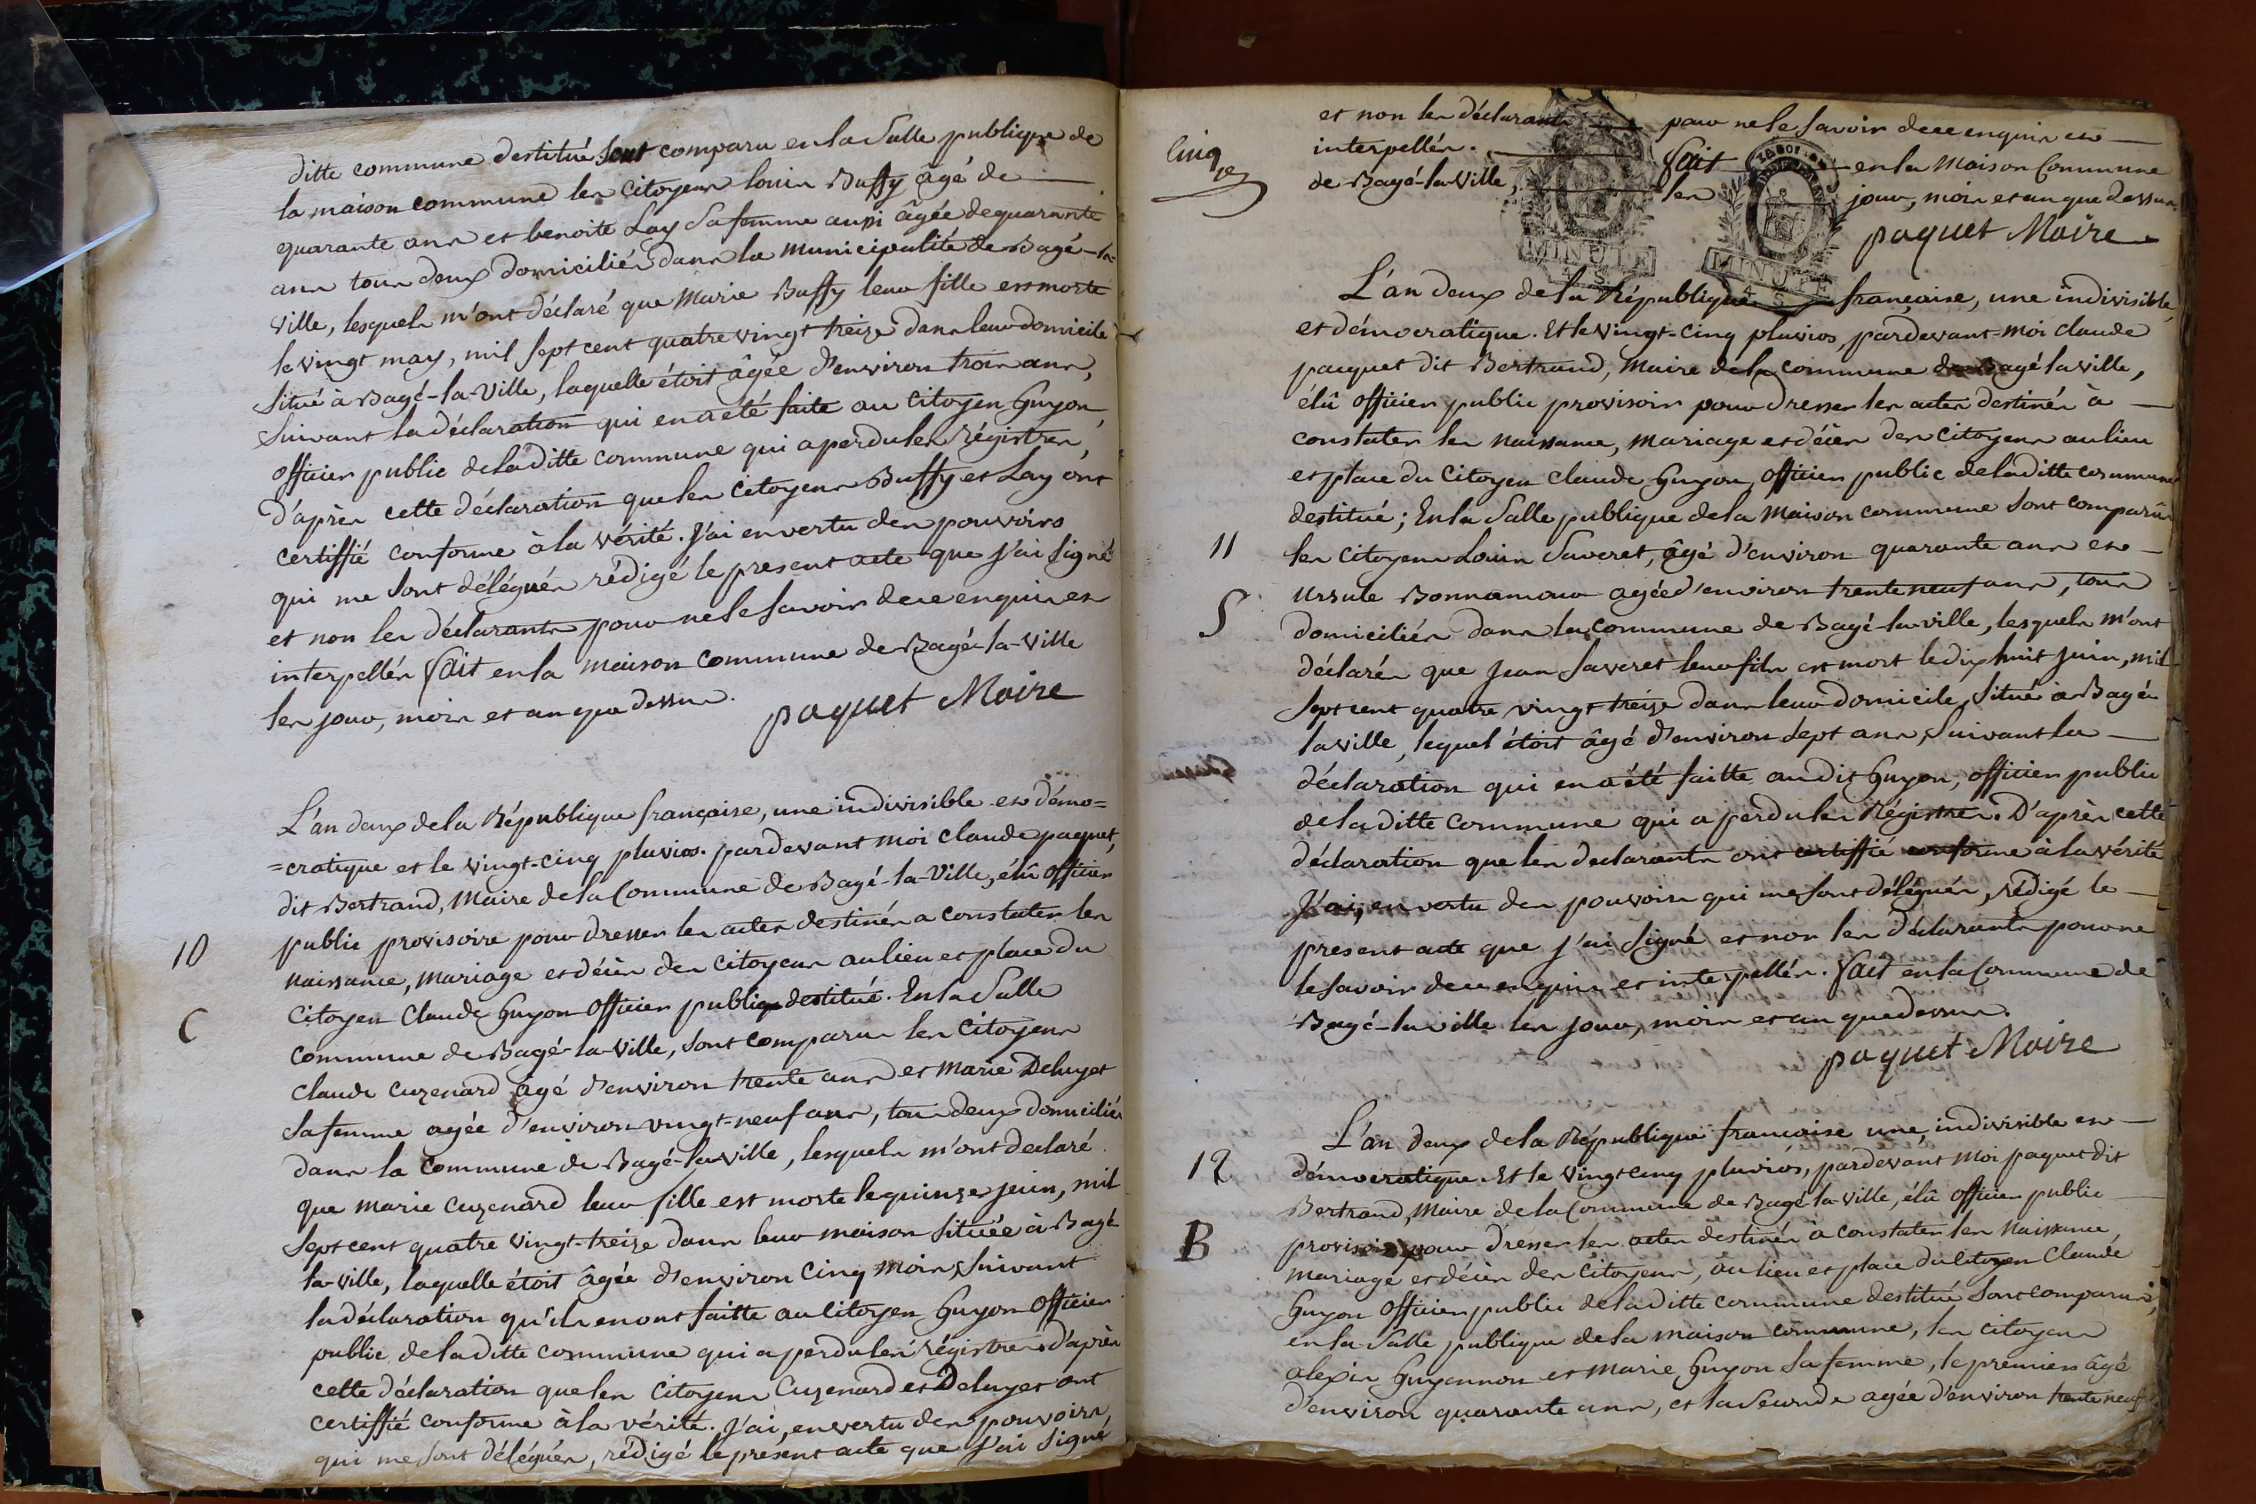 ditte commune destitué sont comparu en la Salle publique de
la maison commune les Citoyens louis Buffy âgé de
quarante ans et benoite Lay Sa femme aussi âgée de quarante
ans tous deux domiciliés dans la municipalité de Bagé-la-
Ville, lesquels m'ont déclaré que Marie Buffy leur fille est morte
le vingt may, mil sept cent quatre vingt treize dans leur domicile
Situé a Bagé-la-Ville, laquelle étoit âgée d'environ trois ans,
Suivant la déclaration qui en a eté faite au Citoyen Guyon,
officier public de la ditte commune qui a perdu les régistres,
d'après cette déclaration que les citoyens Buffy et Lay ont
certiffié conforme à la vérité. J'ai en vertu des pouvoirs
qui me sont délégués rédigé le present acte que j'ai signé
et non les déclarants pour ne le savoir de ce enquis et
interpellés fait en la maison commune de Bagé-la-Ville
les jour, mois et an que dessus.
paquet Maire
L'an deux de la République française, une indivisible et démo=
=cratique et le vingt-cinq pluvios. pardevant moi claude paquet,
dit Bertrand, Maire de la Commune de Bagé-la-Ville, élû officier
public provisoire pour dresser les actes destinés a constater les
10
naissance, mariage et décès des Citoyens au lieu et place du
Citoyen Claude Guyon officier public destitué. En la Salle
C
commune de Bagé-la-Ville, sont comparus les Citoyens
Claude Cuzenard âgé d'environ trente ans et Marie Deluyet
Sa femme agée d'environ vingt-neuf ans, tous deux domiciliés
dans la commune de Bagé-la-Ville, lesquels m'ont declaré
que marie Cuzenard leur fille est morte le quinze juin, mil
Sept cent quatre vingt-treize dans leur maison située à Bagé-
la-ville, laquelle étoit âgée d'environ cinq mois, suivant
la déclaration qu'ils en ont faitte au Citoyen Guyon officier
public de la ditte commune qui a perdu les régistres d'après
cette déclaration que les Citoyens Cuzenard et Deluyet ont
certiffié conforme à la vérité. J'ai, en vertu des pouvoirs,
qui me sont délégués, rédigé le présent acte que j'ai signé
et non les déclarants pour ne le savoir de ce enquis et
Cinq
interpellés. fait en la Maison Commune
de Bagé-la-Ville, les jour, mois et an que dessus
MINUTE
MINUTE
paquet Maire
L'an deux de la République française, une indivisible,
et démocratique. Et le vingt-cinq pluvios, pardevant-moi claude
pacquet dit Bertrand, Maire de la commune de Bagé la ville,
élû officier public provisoir pour dresser les actes destinés à
constater les naissance, mariage et décès des Citoyens au lieu
et place du Citoyen claude Guyon, officier public de la ditte commune
destitué; En la Salle publique de la Maison commune Sont comparûs
11
les Citoyens Louis Saveret, âgé d'environ quarante ans et
ursule Bonnamour agée d'environ trente neuf ans, tous
S
domiciliés dans la commune de Bagé-la-ville, lesquels m'ont
déclarés que Jean Saveret leur fils est mort le dix huit juin, mil
Sept cent quatre vingt treize dans leur domicile, situé à Bagé
la ville, lequel étoit âgé d'environ sept ans, suivant la
déclaration qui en a été faitte au dit Guyon, officier public
de la ditte commune qui a perdu les Régistres. D'après cette
déclaration que les declarants ont certiffié conforme à la vérité
J'ai, en vertu des pouvoirs qui me sont délégués, rédigé le
present acte que j'ai signé et non les déclarants pour ne
le savoir de ce enquis et interpellés. fait en la Commune de
Bagé-la ville les jour, mois et an que dessus.
paquet Maire
L'an deux de la République francaise une, indivisible et
12
démocratique. Et le vingt cinq pluvios, pardevant moi paquet dit
Bertrand, Maire de la Commune de Bagé-la-Ville, élû officier public
B
provisoir pour dresser les actes destinés à constater les Naissance
mariage et décès des Citoyens, au lieu et place du Citoyen Claude
Guyon officier public de la ditte commune destitué Sont comparus,
en la Salle publique de la maison commune, les Citoyens
alexis Guyennon et Marie Guyon Sa femme, le premier âgé
d'environ quarante ans, et la seconde agée d'environ trente neuf